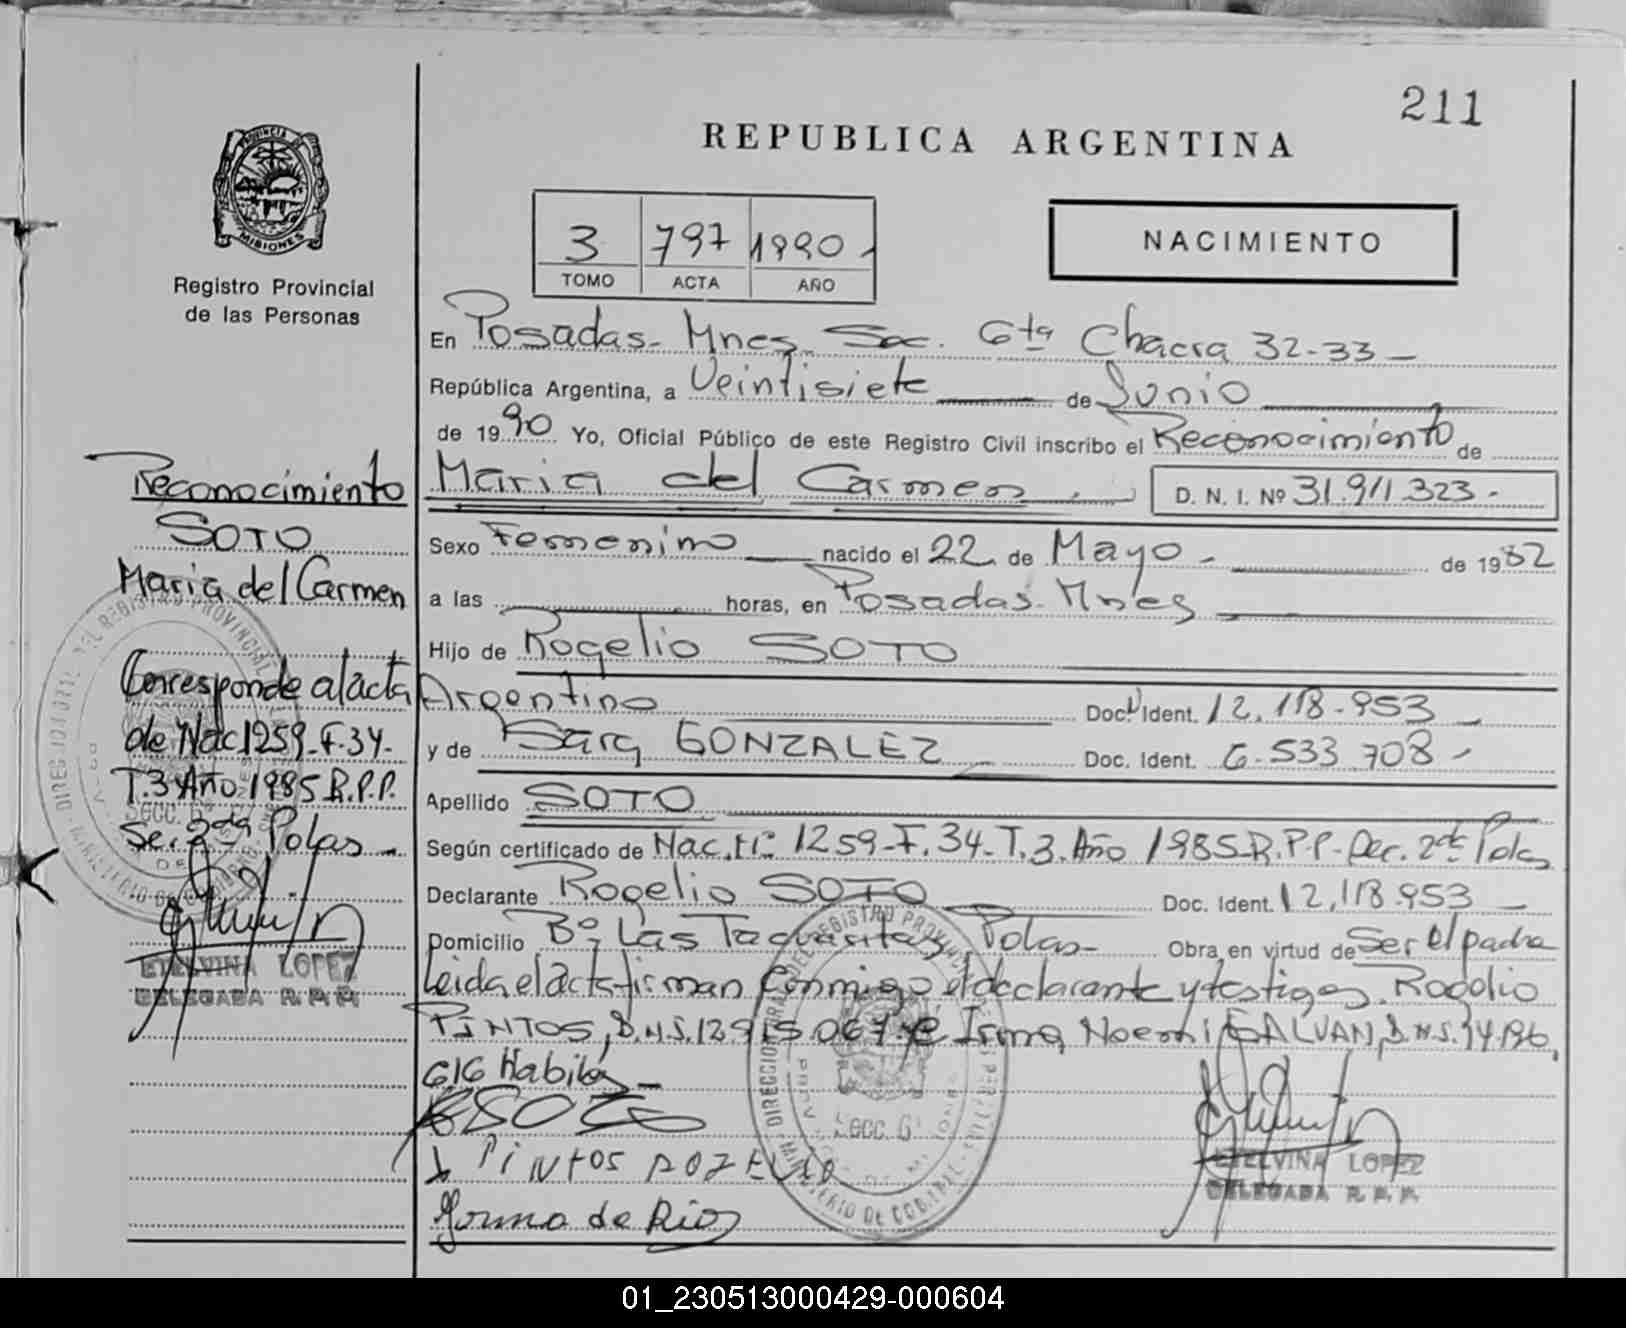 211
REPUBLICA ARGENTINA
PROVINCIA DE
MISIONES
Registro Provincial
de las Personas
3 797 1990
TOMO ACTA AÑO
NACIMIENTO
En Posadas - Mnes. Sec. 6ta Chacra 32-33 -
República Argentina, a Veintisiete de Junio
de 1990 Yo, Oficial Público de este Registro Civil inscribo el Reconocimiento de
Maria del Carmen D. N. I. Nº 31.911.323 -
Sexo Femenino nacido el 22 de Mayo - de 1982
a las horas, en Posadas - Mnes
Hijo de Rogelio SOTO
Argentino Doc. Ident. 12.118.953 -
y de Sara GONZALEZ Doc. Ident. 6.533.708 -
Apellido SOTO
Según certificado de Nac. 1259-F.34-T.3-Año 1985-R.P.P. 2da Pdas
Declarante Rogelio SOTO Doc. Ident. 12.118.953 -
Domicilio Bº Las Tacuaritas Pdas - Obra en virtud de Ser el padre
Leida el acta firman conmigo el declarante y testigos. Rogelio
PINTOS, D.N.I. 12.915.067 e Irma Noemi GALVAN, D.N.I. 14.196.
616 Habiles -
SOTO
PINTOS ROGELIO
Irma de Rios
ETELVINA LOPEZ
DELEGADA R.P.P.
Reconocimiento
SOTO
Maria del Carmen
Corresponde al acta
de Nac 1259-F.34-
T.3 Año 1985 R.P.P.
Sec. 2da Pdas -
ETELVINA LOPEZ
DELEGADA R.P.P.
01_230513000429-000604